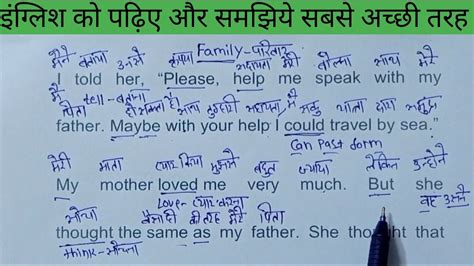 इंग्लिश को पढ़िए और समझिये सबसे अच्छी तरह
मैने बताया उससे कृपया Family-परिवार सहायता मेरी बोलना साथ मेरे
I told her, “Please, help me speak with my
पिता tell-बताना
father. Maybe with your help I could travel by sea.”
Can Past form
मेरी माता प्यार किया मुझसे बहुत ज्यादा लेकिन उन्होने
My mother loved me very much. But she
सोचा Love-प्यार करना पिता वह उसने
thought the same as my father. She thought that
think-सोचना